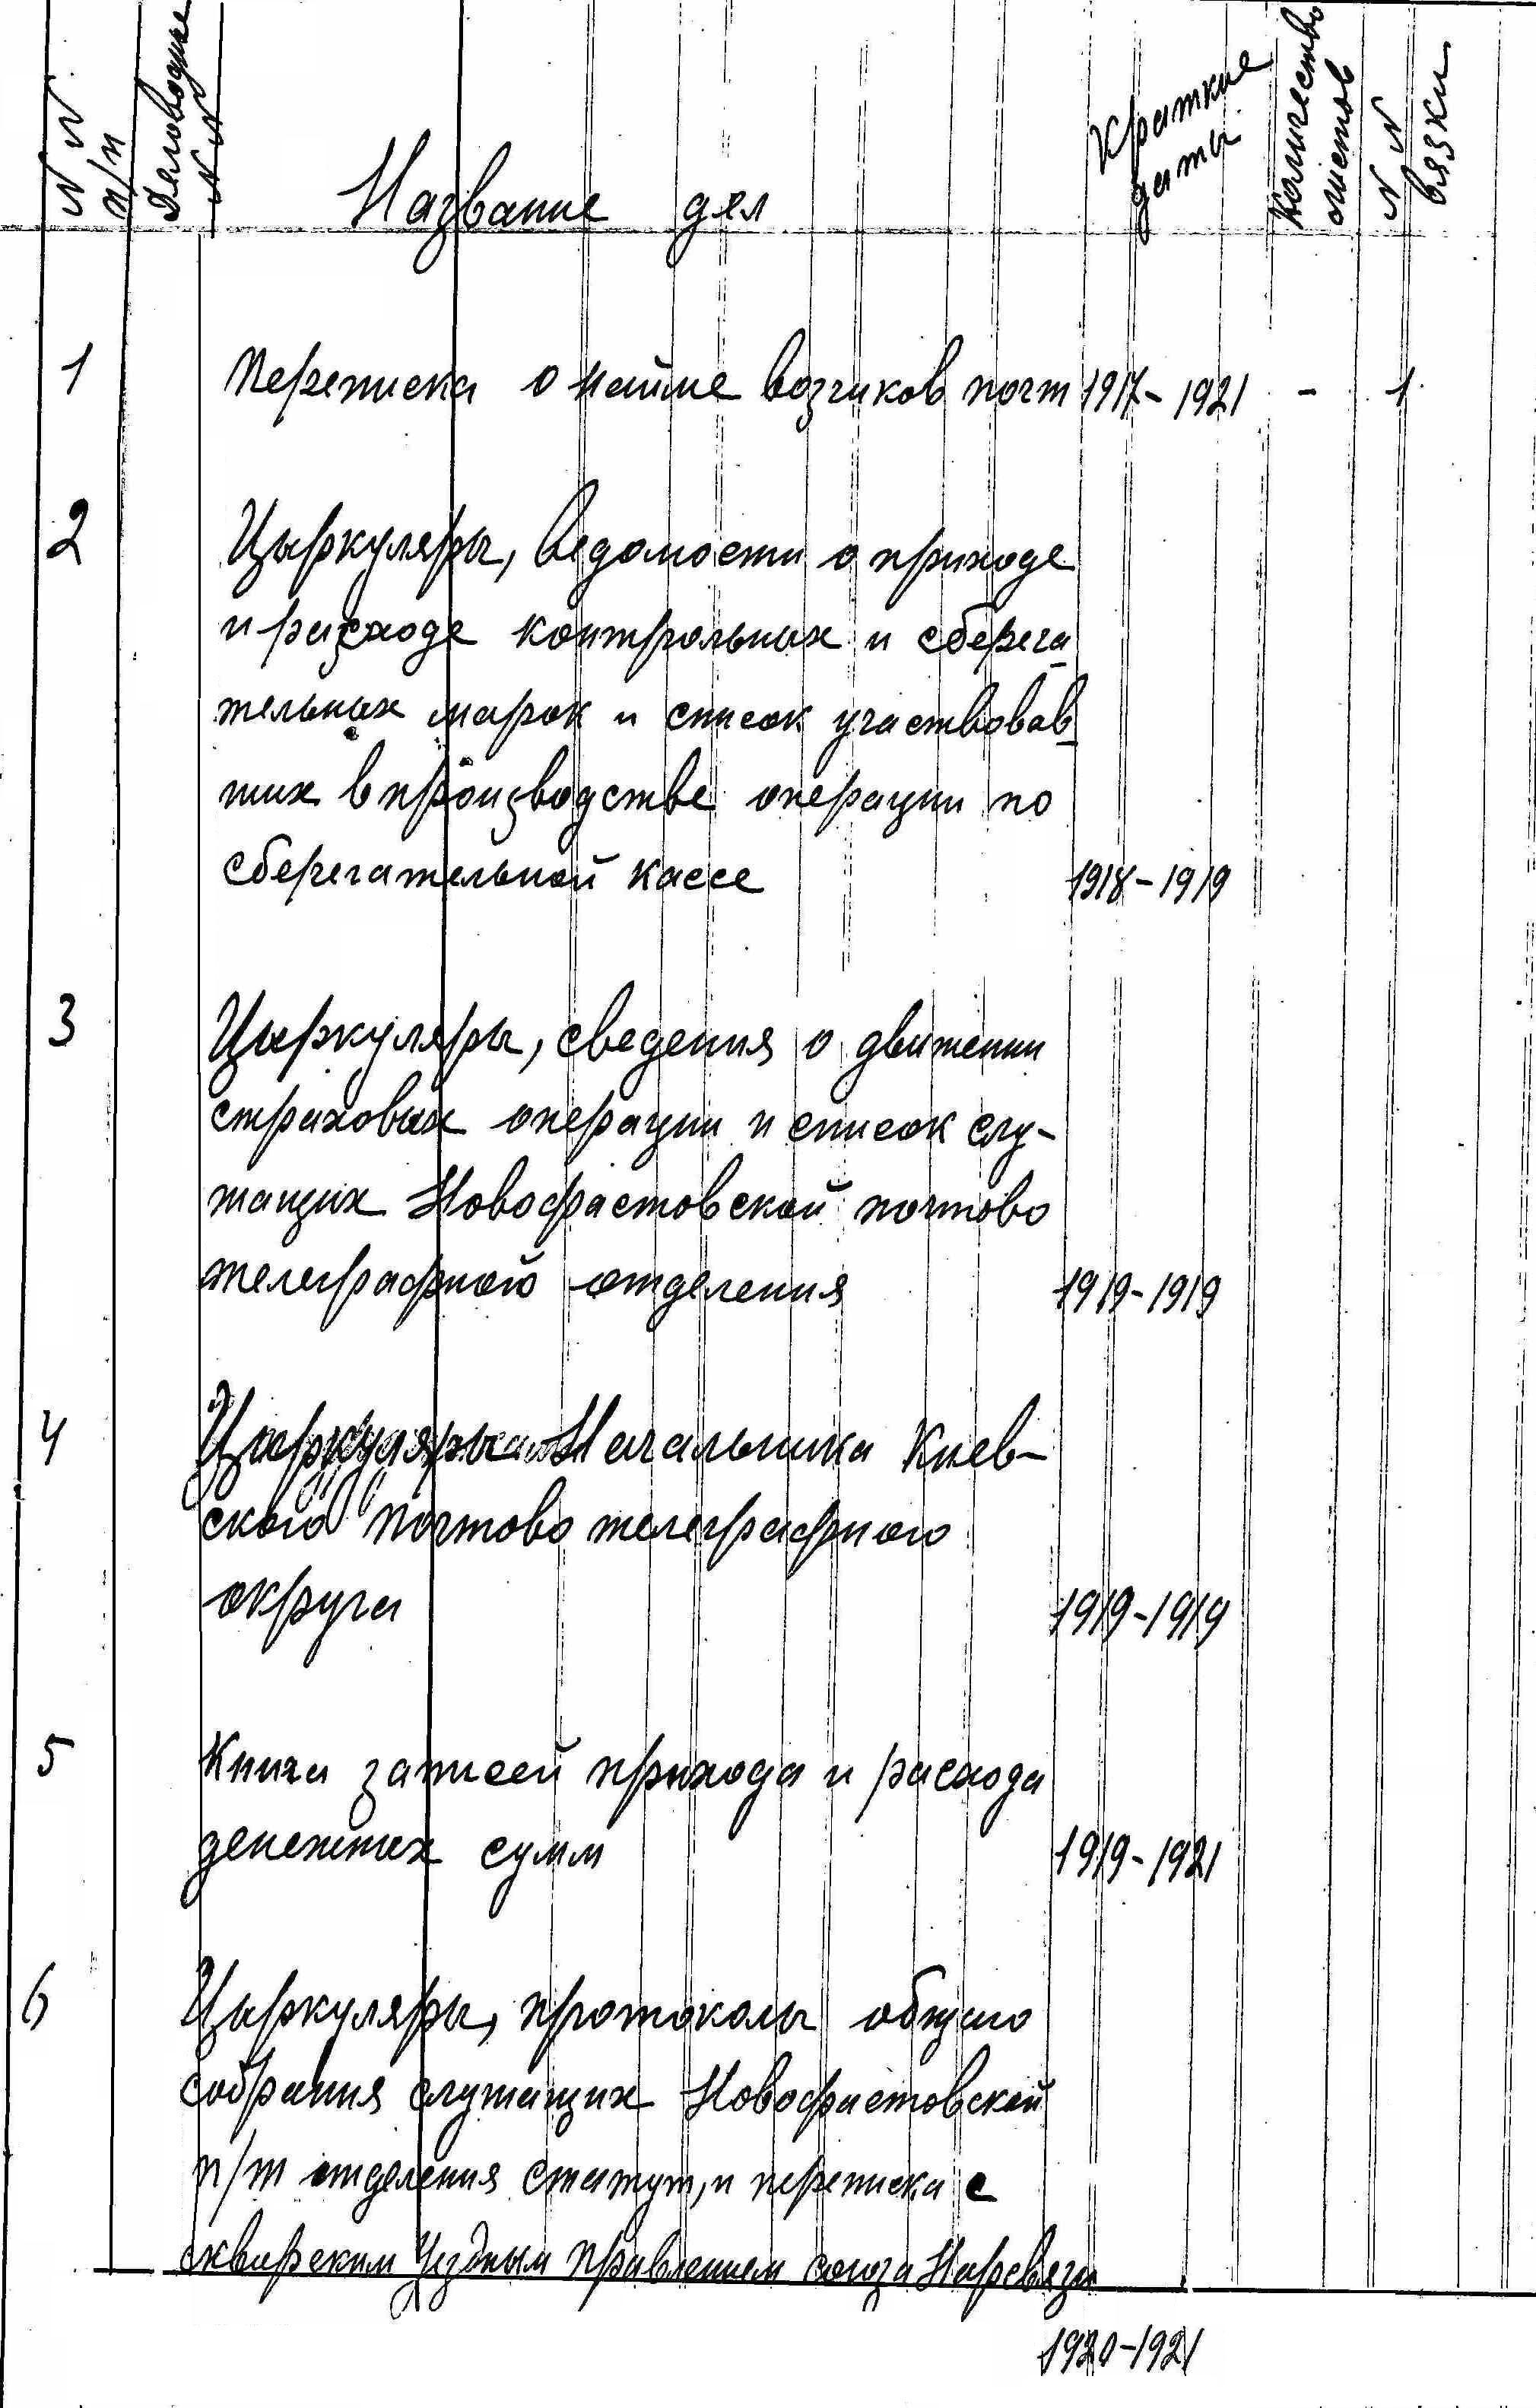 №№ п/п
Деловодные №№
Название дел
Краткие даты
Количество листов
№№ вязки
1 Переписка о найме возчиков почт 1917-1921 - 1
2 Цыркуляры, ведомости о приходе
и расходе контрольных и сберега
тельных марок и список участвовав
ших в производстве операции по
сберегательной кассе 1918-1919
3 Цыркуляры, сведения о движении
страховых операции и список слу-
жащих Новофастовской почтово
телеграфного отделения 1919-1919
4 Цыркуляры Начальника Киев-
ского почтово телеграфного
округа 1919-1919
5 Книга записей прихода и расхода
денежных сумм 1919-1921
6 Цыркуляры, протоколы общего
собрания служащих Новофастовской
п/т отделения статут, и переписка с
сквирским Уездным правлением союза Нарсвязи
1920-1921